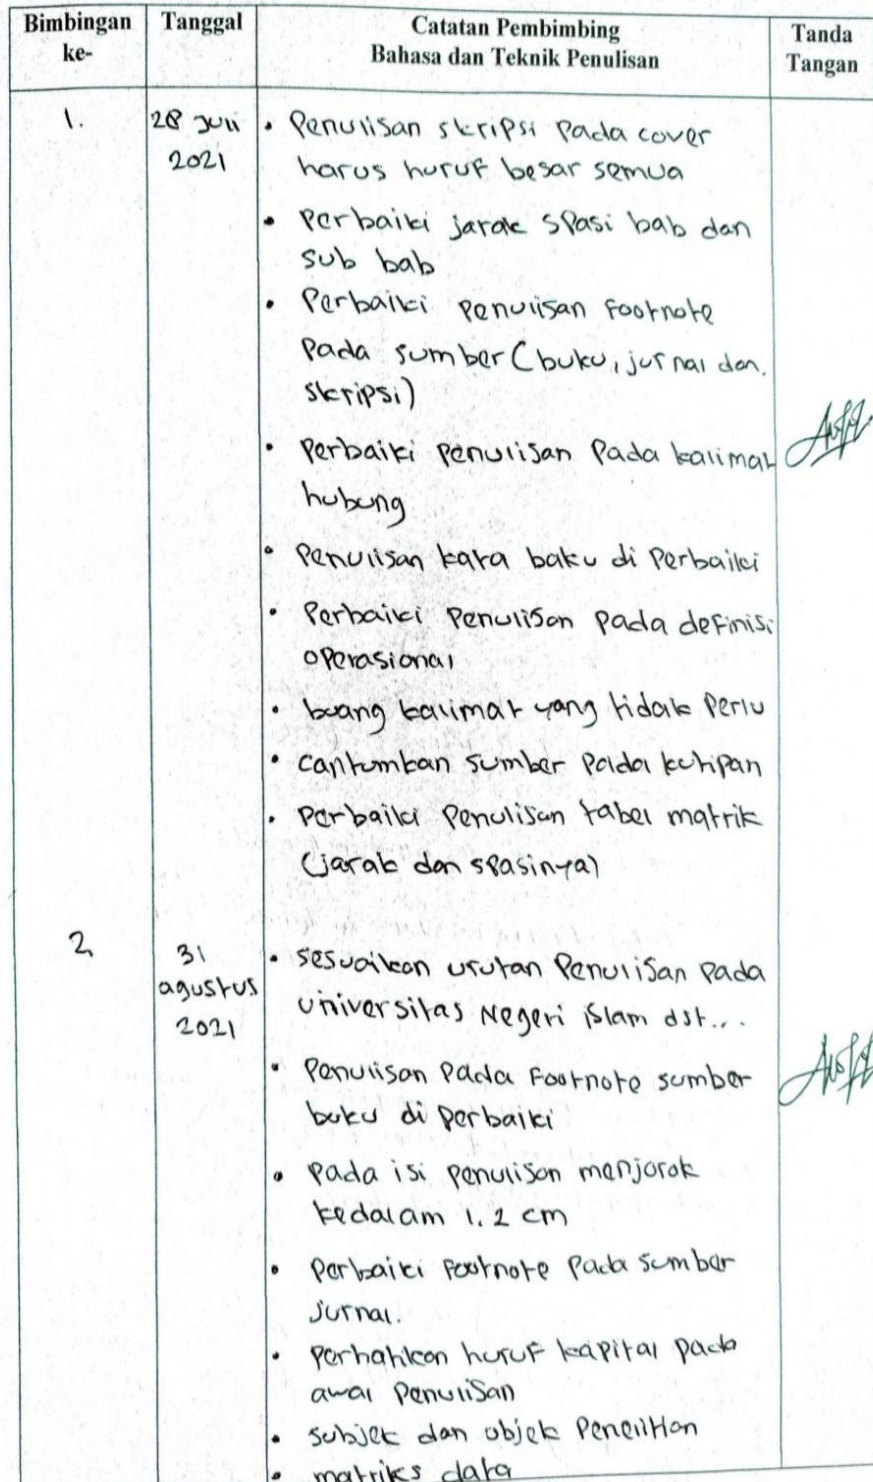 Bimbingan ke-
Tanggal
Catatan Pembimbing
Bahasa dan Teknik Penulisan
Tanda Tangan
1.
28 Juli
2021
• Penulisan skripsi pada cover
harus huruf besar semua
• Perbaiki jarak spasi bab dan
sub bab
• Perbaiki penulisan footnote
pada sumber (buku, jurnal dan
skripsi)
• Perbaiki penulisan pada kalimat
hubung
• Penulisan kata baku di perbaiki
• Perbaiki penulisan pada definisi
operasional
• buang kalimat yang tidak perlu
• cantumkan sumber pada kutipan
• perbaiki penulisan tabel matrik
(jarak dan spasinya)
2
31
agustus
2021
• sesuaikan urutan penulisan pada
universitas Negeri islam dst...
• Penulisan pada footnote sumber
buku di perbaiki
• pada isi penulisan menjorok
kedalam 1.2 cm
• perbaiki footnote pada sumber
jurnal.
• perhatikan huruf kapital pada
awal penulisan
• subjek dan objek penelitian
• matriks data